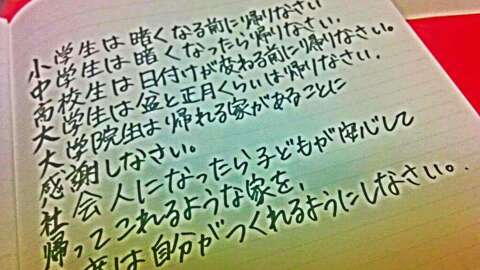 小学生は暗くなる前に帰りなさい
中学生は暗くなったら帰りなさい。
高校生は日付けが変わる前に帰りなさい。
大学生は盆と正月くらいは帰りなさい。
大学院生は帰れる家があることに
感謝しなさい。
社会人になったら子どもが安心して
帰ってこれるような家を、
度は自分がつくれるようにしなさい。